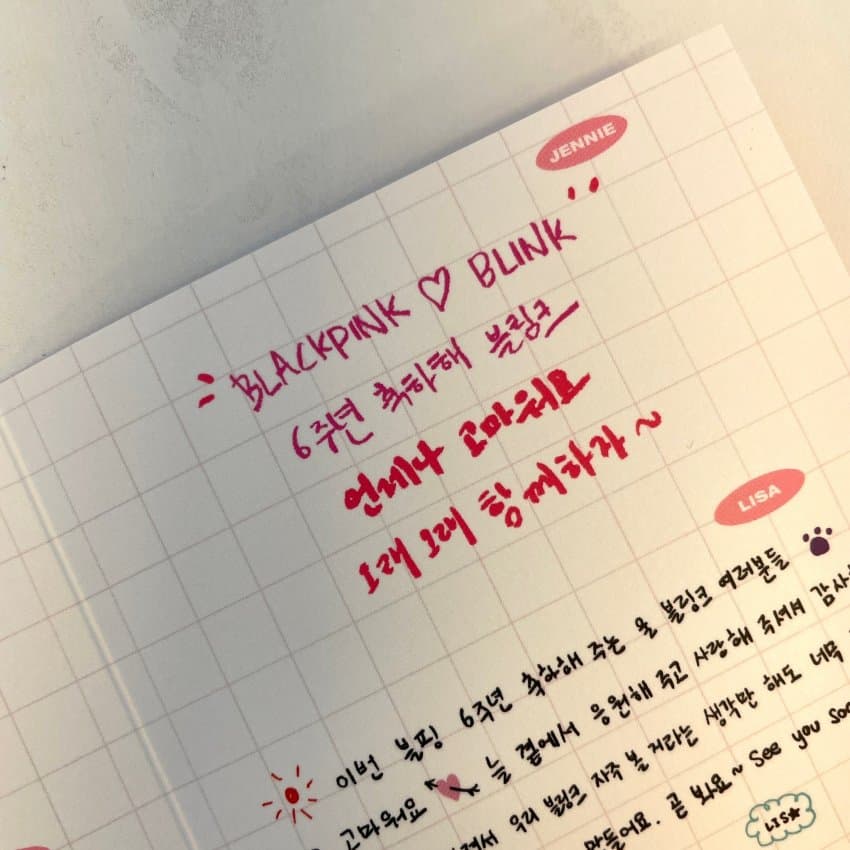 JENNIE
BLACKPINK ♡ BLINK
6주년 축하해 블링크
언제나 고마워요
오래 오래 함께하자~
LISA
이번 블핑 6주년 축하해 주는 울 블링크 여러분들
고마워요 늘 곁에서 응원해 주고 사랑해 주셔서
우리 블링크 자주 볼 거라는 생각만 해도 너무
곧 봐요~ See you
LIS★